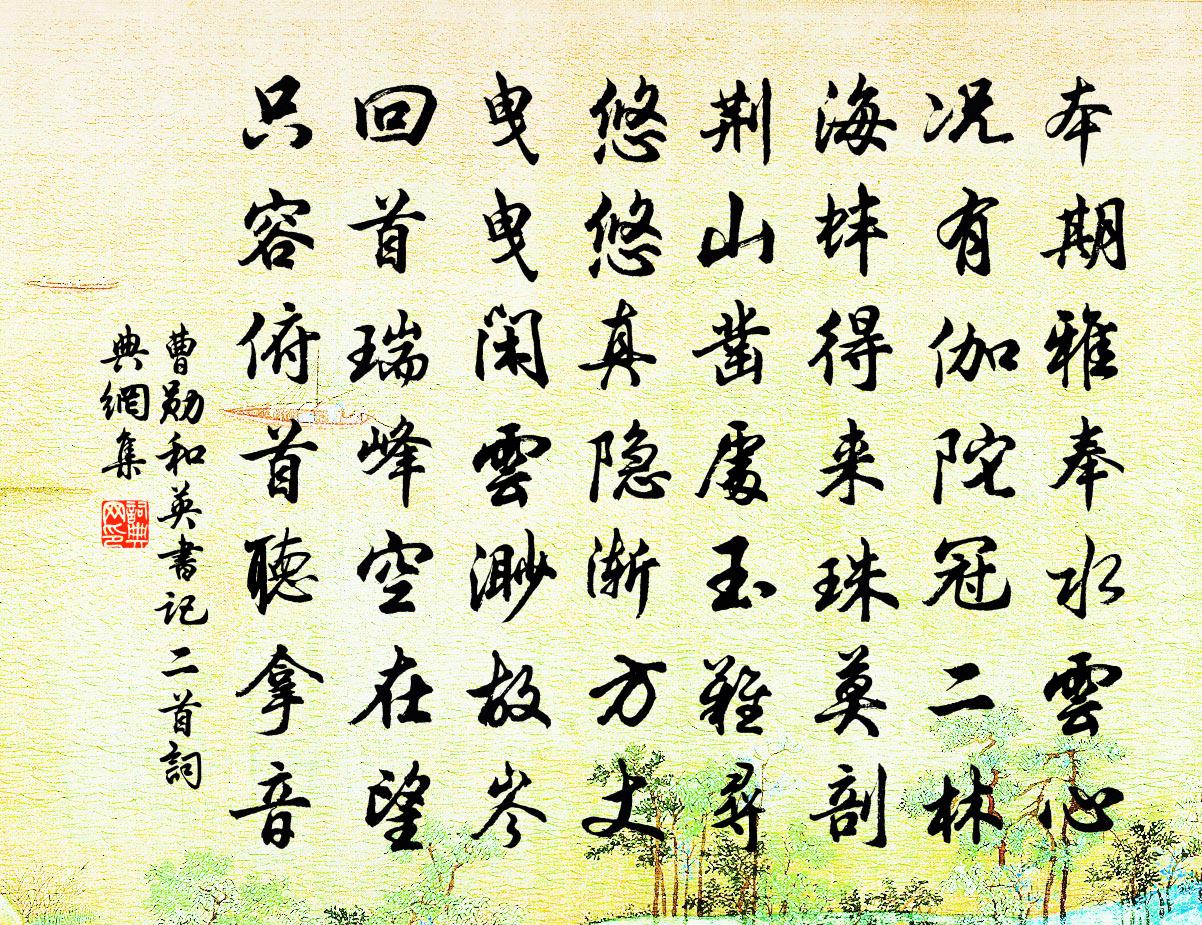 本期雅奉水雲心
况有伽陀冠二林
海蚌得来珠莫剖
荆山凿處玉難尋
悠悠真隐渐方丈
曳曳闲雲渺故岑
回首瑞峰空在望
只容俯首聽拿音
曹勋和英書记二首詞
典網集
詞典
网印